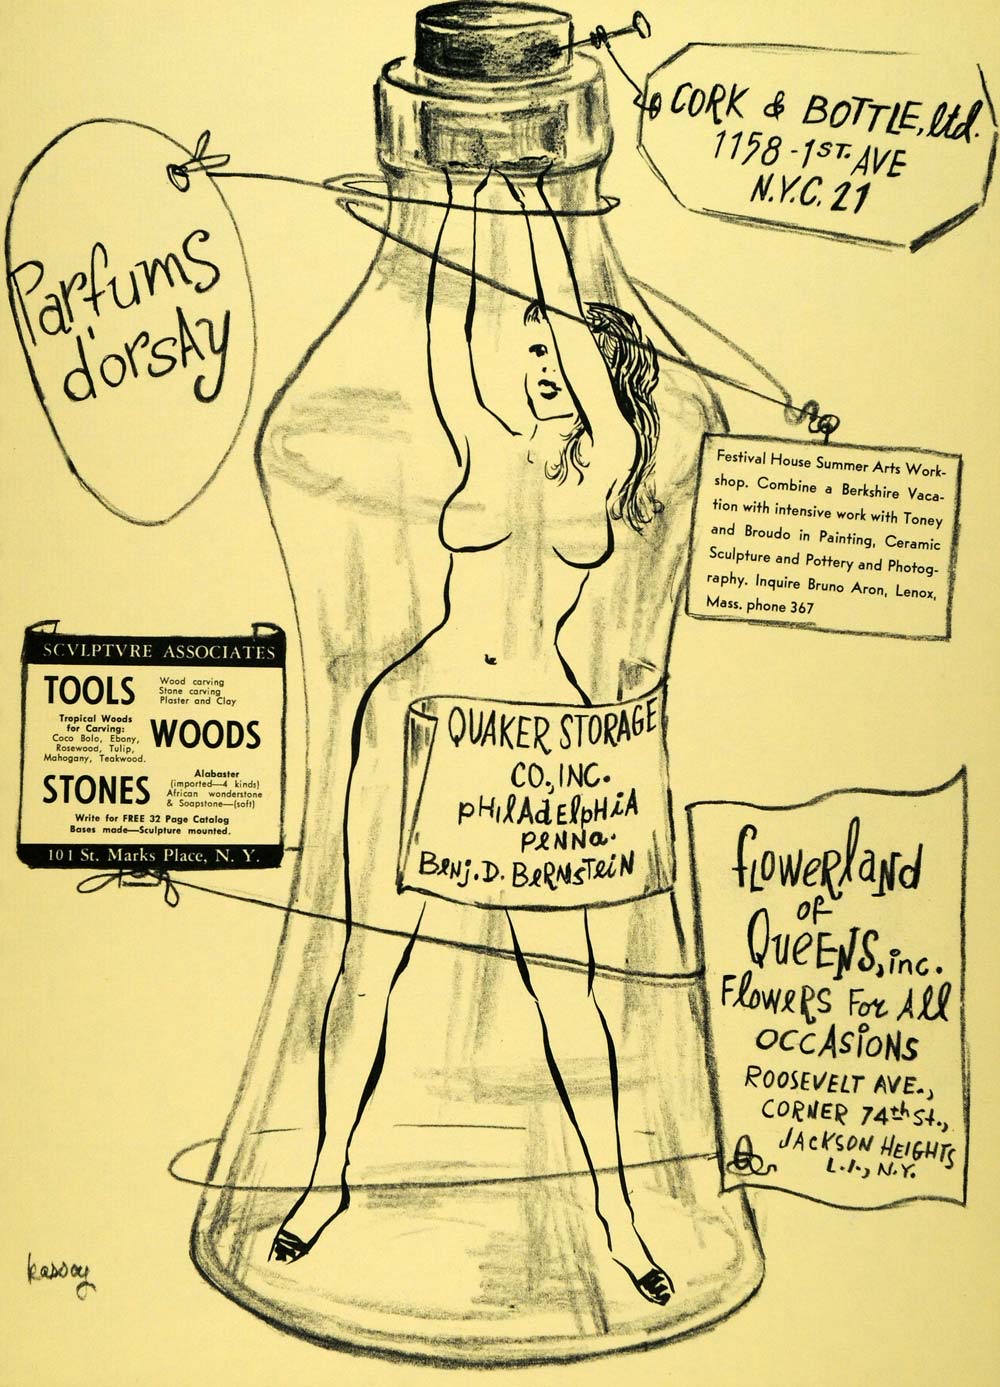 CORK & BOTTLE, ltd.
1158 - 1ST. AVE
N.Y.C. 21
Parfums
d'orsAy
Festival House Summer Arts Work-
shop. Combine a Berkshire Vaca-
tion with intensive work with Toney
and Broudo in Painting, Ceramic
Sculpture and Pottery and Photog-
raphy. Inquire Bruno Aron, Lenox,
Mass. phone 367
SCVLPTVRE ASSOCIATES
TOOLS
Wood carving
Stone carving
Plaster and Clay
Tropical Woods
for Carving:
Coco Bolo, Ebony,
Rosewood, Tulip,
Mahogany, Teakwood.
WOODS
STONES
Alabaster
(imported—4 kinds)
African wonderstone
& Soapstone—(soft)
Write for FREE 32 Page Catalog
Bases made—Sculpture mounted.
101 St. Marks Place, N. Y.
QUAKER STORAGE
CO., INC.
pHilAdElpHiA
PENNa.
BENj. D. BeRNsTeiN
flowerlaNd
of
QueENS, inc.
FloweRS For All
OCCASiONS
ROOSEVELT AVE.,
CORNER 74th St.,
JACKSON HEIGHTS
L.I., N.Y.
kassoy